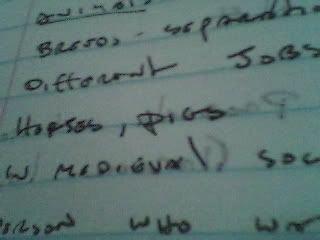 BREEDS - SEPARATIO
DIFFERENT JOBS
HORSES, PIGS
W/ MEDIEVAL SOC
WHO